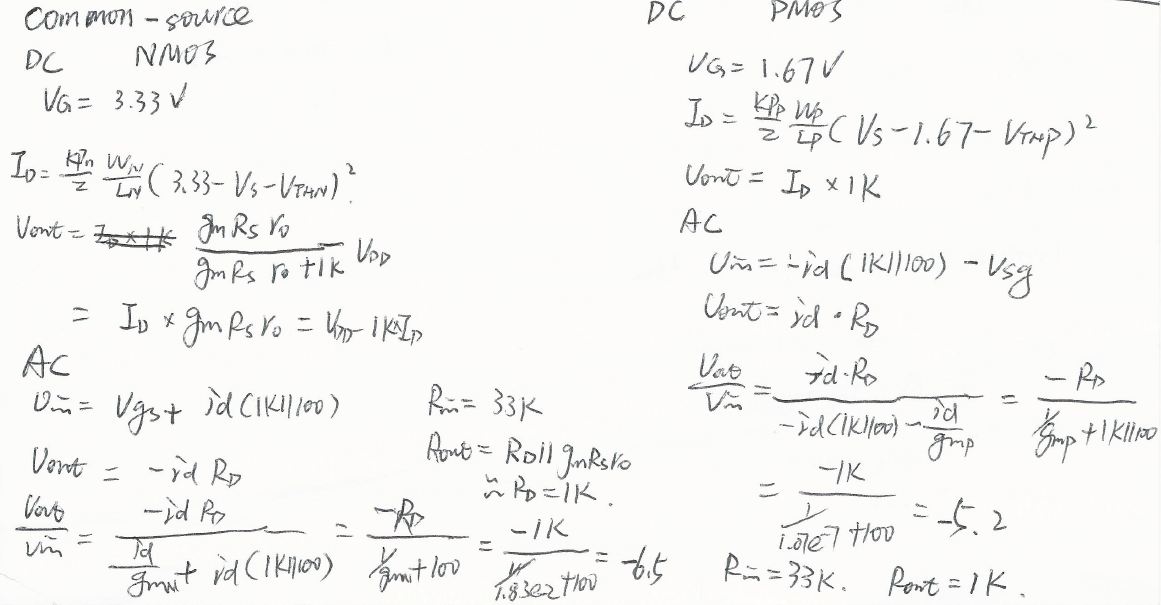 Common-source
DC NMOS
VG = 3.33 V
ID = KPn/2 WN/LN (3.33 - VS - VTHN)²
Vout = ID × 1K gmRs ro / gmRs ro + 1K VDD
= ID × gmRs ro = VDD - 1K × ID
AC
Vin = Vgs + id (1K||100)
Vout = -id RD
Vout/Vin = -id RD / id/gmn + id(1K||100) = -RD / 1/gmn + 100 = -1K / 1/1.83e-2 + 100 = -6.5
Rin = 33K
Rout = RD || gmRsro
≈ RD = 1K.
DC PMOS
VG = 1.67 V
ID = KPp/2 Wp/Lp (VS - 1.67 - VTHP)²
Vout = ID × 1K
AC
Vin = -id (1K||100) - Vsg
Vout = id · RD
Vout/Vin = id·RD / -id(1K||100) - id/gmp = -RD / 1/gmp + 1K||100
= -1K / 1/1.07e-7 + 100 = -5.2
Rin = 33K. Rout = 1K.